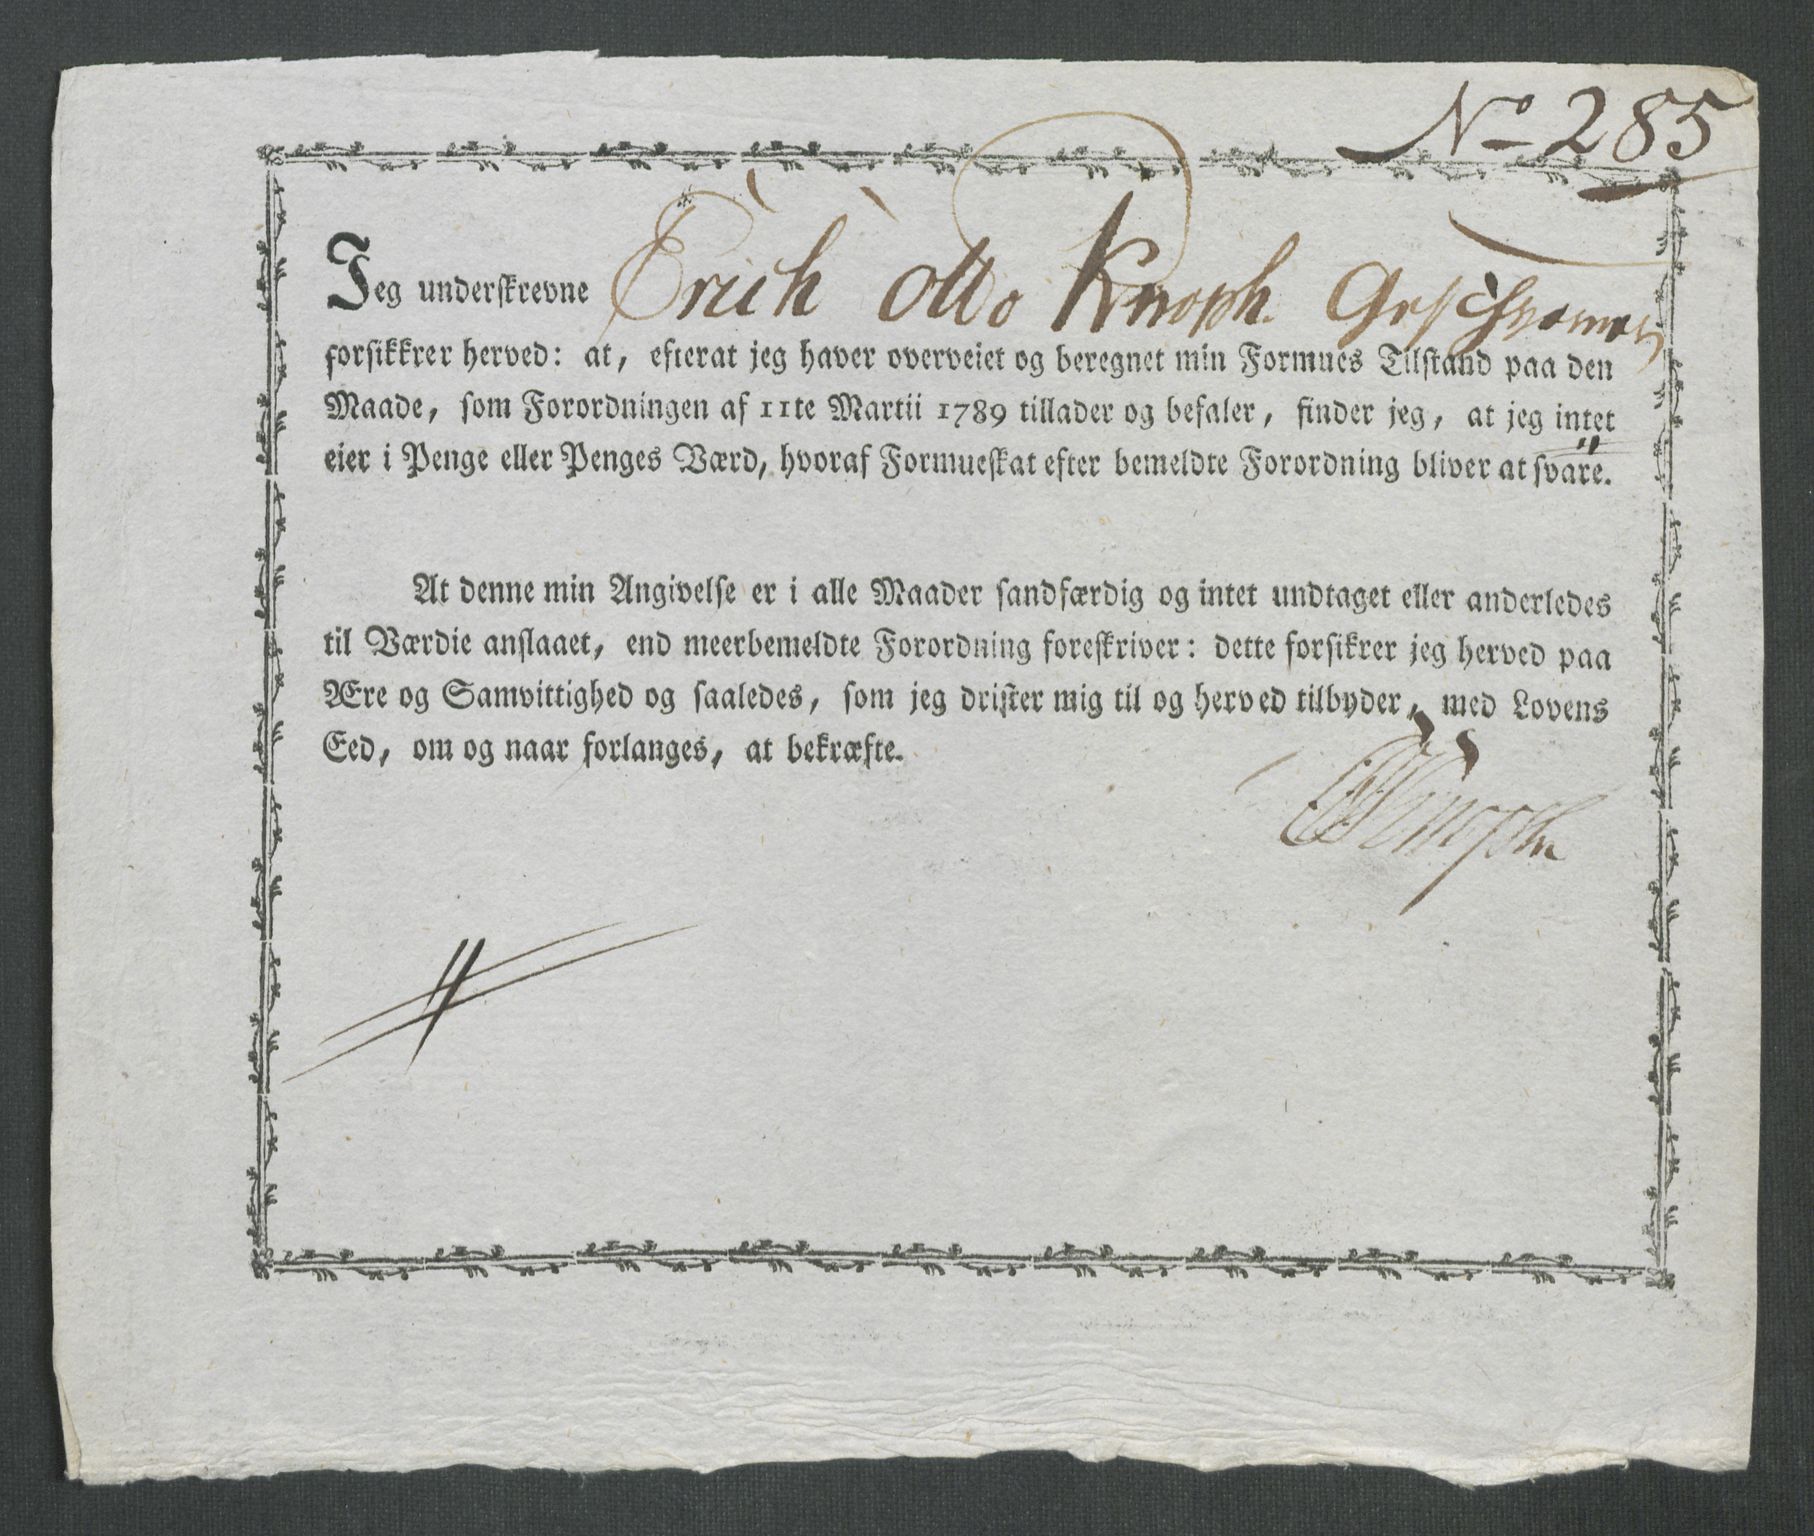 No 285
Jeg underskrevne Erich Otto Knoph. Geschvorner
forsikkrer herved: at, efterat jeg haver overveiet og beregnet min Formues Tilstand paa den
Maade, som Forordningen af 11te Martii 1789 tillader og befaler, finder jeg, at jeg intet
eier i Penge eller Penges Værd, hvoraf Formueskat efter bemeldte Forordning bliver at svare.
At denne min Angivelse er i alle Maader sandfærdig og intet undtaget eller anderledes
til Værdie anslaaet, end meerbemeldte Forordning foreskriver: dette forsikrer jeg herved paa
Ære og Samvittighed og saaledes, som jeg drister mig til og herved tilbyder, med Lovens
Eed, om og naar forlanges, at bekræfte.
EOKnoph